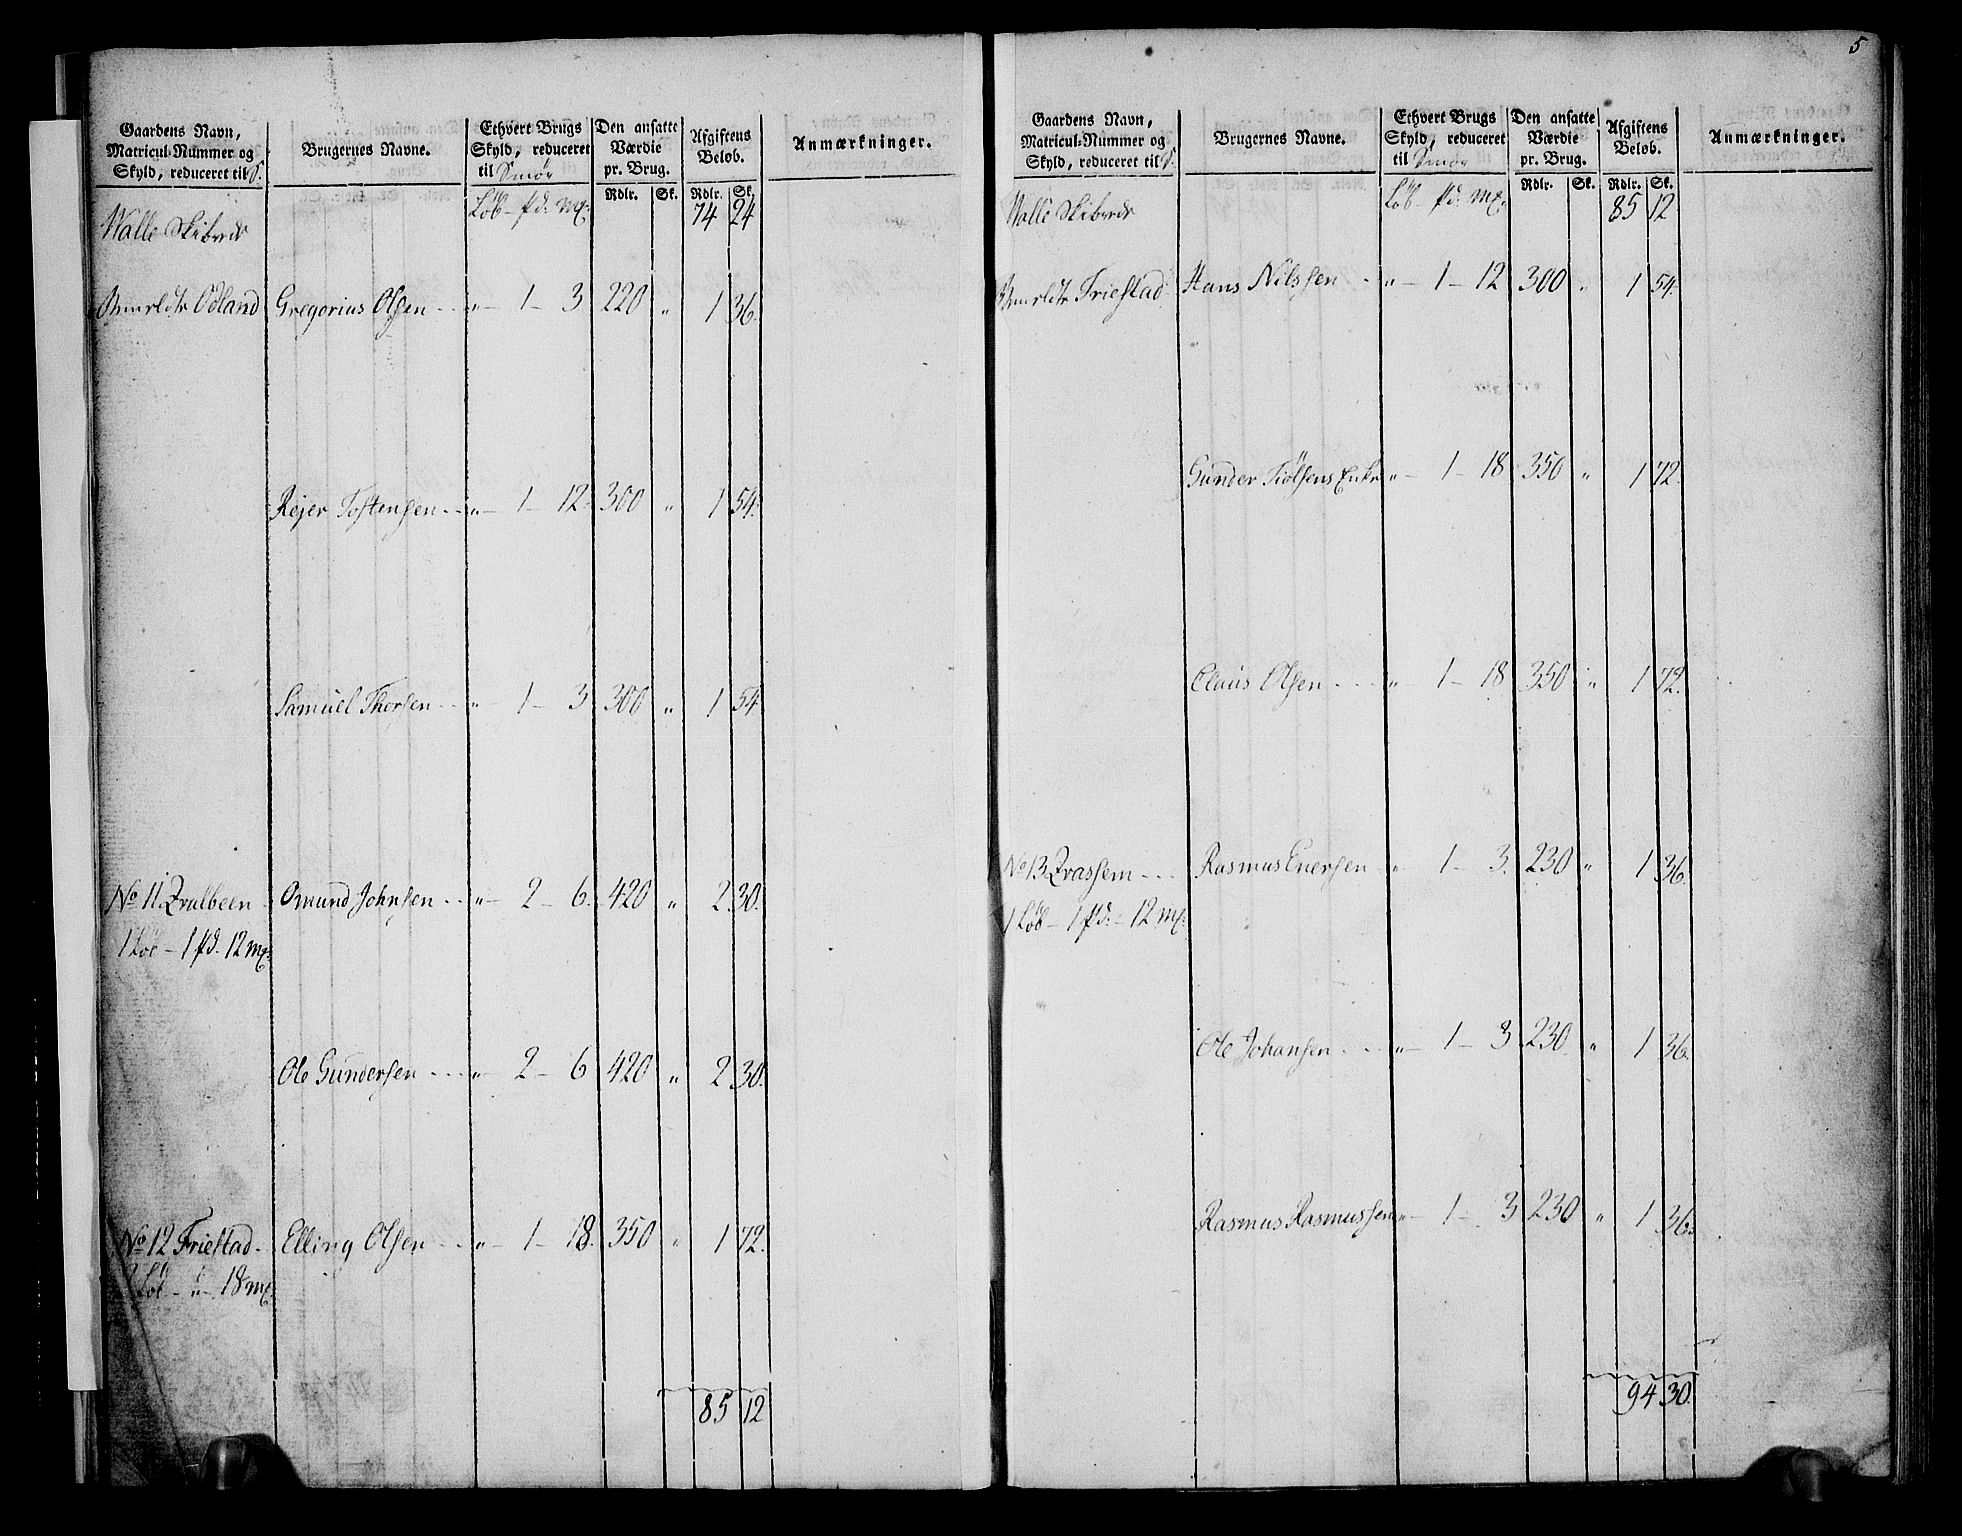 Gaardens Navn,
Matricul-Nummer og
Skyld, reduceret til S.
Brugernes Navne.
Ethvert Brugs
Skyld, reduceret
til Smör
Den ansatte
Værdie
pr. Brug.
Afgiftens
Beløb.
Anmærkninger.
Rdlr. Sk. Rdlr. Sk.
Walle Skibrede Löb - pd. mx: 74 24
Odland Gregorius Olsen - - „ - 1 - 3 220 „ 1 36.
Rejer Tostensen - - „ - 1 - 12 300 „ 1 54.
Samuel Thorsen - - „ - 1 - 3 300 „ 1 54
No 11 Omund Johnsen - - „ - 2 - 6. 420 „ 2 30.
1 Löb - 1 pd. 12 mx:
Ole Gundersen - - „ - 2 - 6 420 „ 2 30.
No 12 Friestad - Elling Olsen - - „ - 1 - 18. 350 „ 1 72.
2 Löb - „ - 18 mx:
85 12
5
Gaardens Navn,
Matricul-Nummer og
Skyld, reduceret til S.
Brugernes Navne.
Ethvert Brugs
Skyld, reduceret
til Smör
Den ansatte
Værdie
pr. Brug.
Afgiftens
Beløb.
Anmærkninger.
Rdlr. Sk. Rdlr. Sk.
Walle Skibrede Löb - pd. mx: 85 12
Friestad Hans Nilssen - „ - 1 - 12 300 „ 1 54.
Gunder Tiölsens Enke „ - 1 - 18 350 „ 1 72.
Claus Olsen - - - „ - 1 - 18 350 „ 1 72.
No 13 - - Rasmus Enersen „ - 1 - 3. 230 „ 1 36.
1 Löb - 1 pd. - 12 mx:
Ole Johansen - - - „ - 1 - 3 230. „ 1 36.
Rasmus Rasmussen „ - 1 - 3 230 „ 1 36.
94 30.